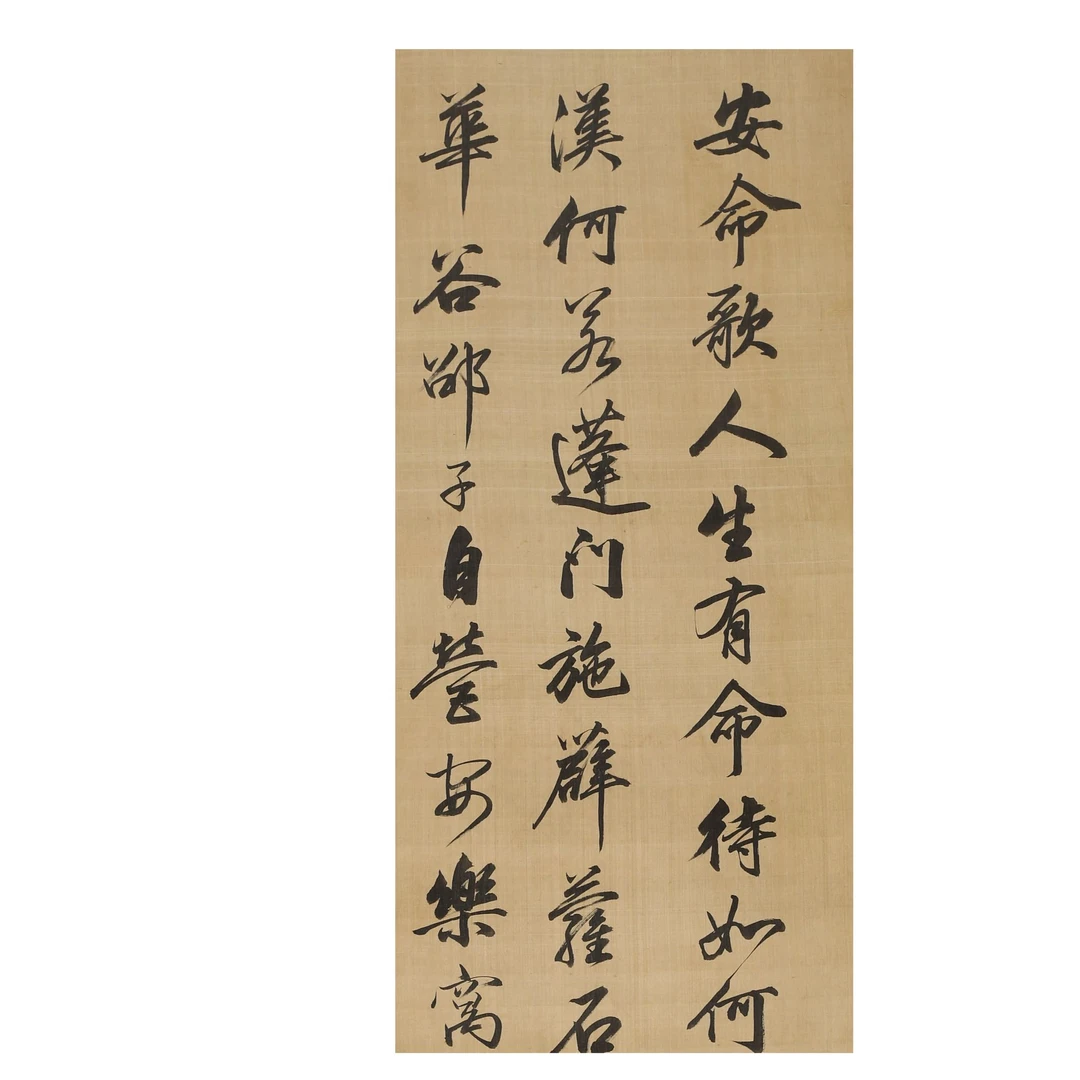 安命歌人生有命待如何
漢何若蓬門施薜蘿石
華谷邵子自營安樂窩